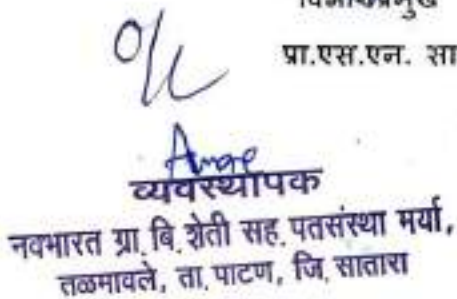 विभागप्रमुख
प्रा.एस.एन. सा
O/C
व्यवस्थापक
नवभारत ग्रा. बि. शेती सह. पतसंस्था मर्या,
तळमावले, ता. पाटण, जि. सातारा